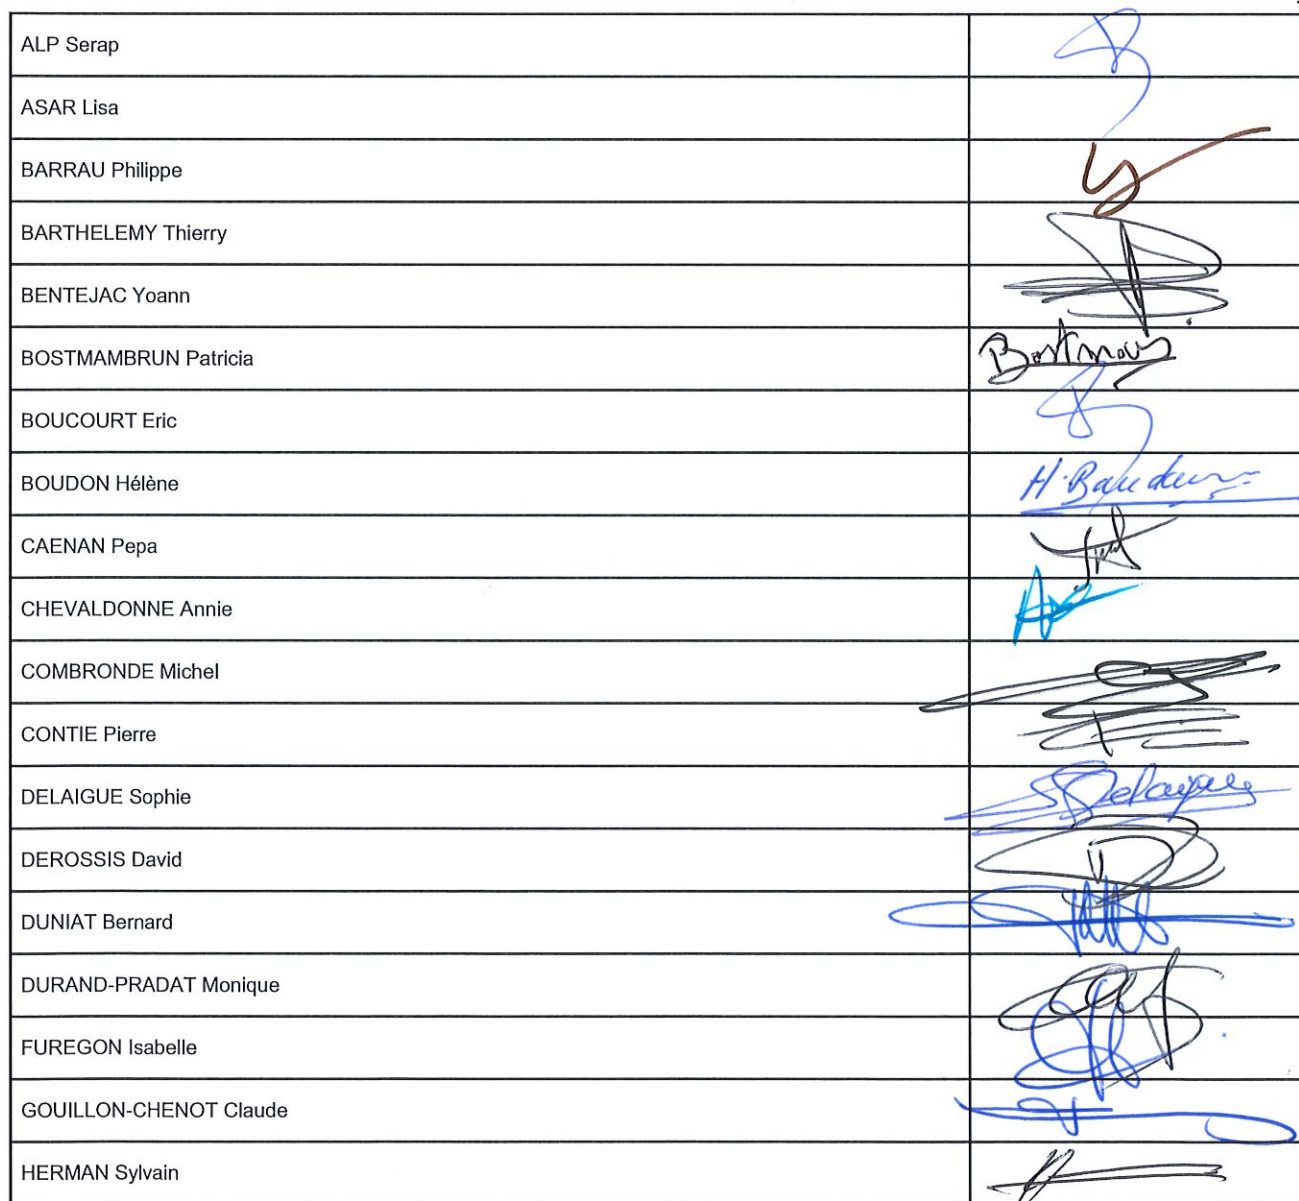 ALP Serap
ASAR Lisa
BARRAU Philippe
BARTHELEMY Thierry
BENTEJAC Yoann
BOSTMAMBRUN Patricia
BOUCOURT Eric
BOUDON Hélène
CAENAN Pepa
CHEVALDONNE Annie
COMBRONDE Michel
CONTIE Pierre
DELAIGUE Sophie
DEROSSIS David
DUNIAT Bernard
DURAND-PRADAT Monique
FUREGON Isabelle
GOUILLON-CHENOT Claude
HERMAN Sylvain